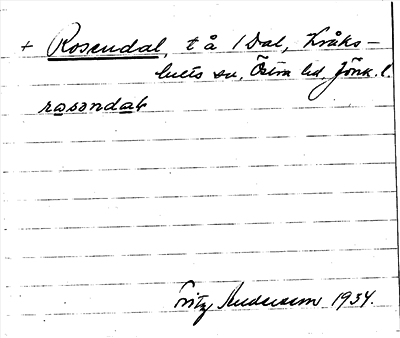 + Rosendal, t å 1 Dal, Kråks-
hults sn, Östra hd, Jönk. l.
rosəndaɫ
Fritz Andersson 1934.